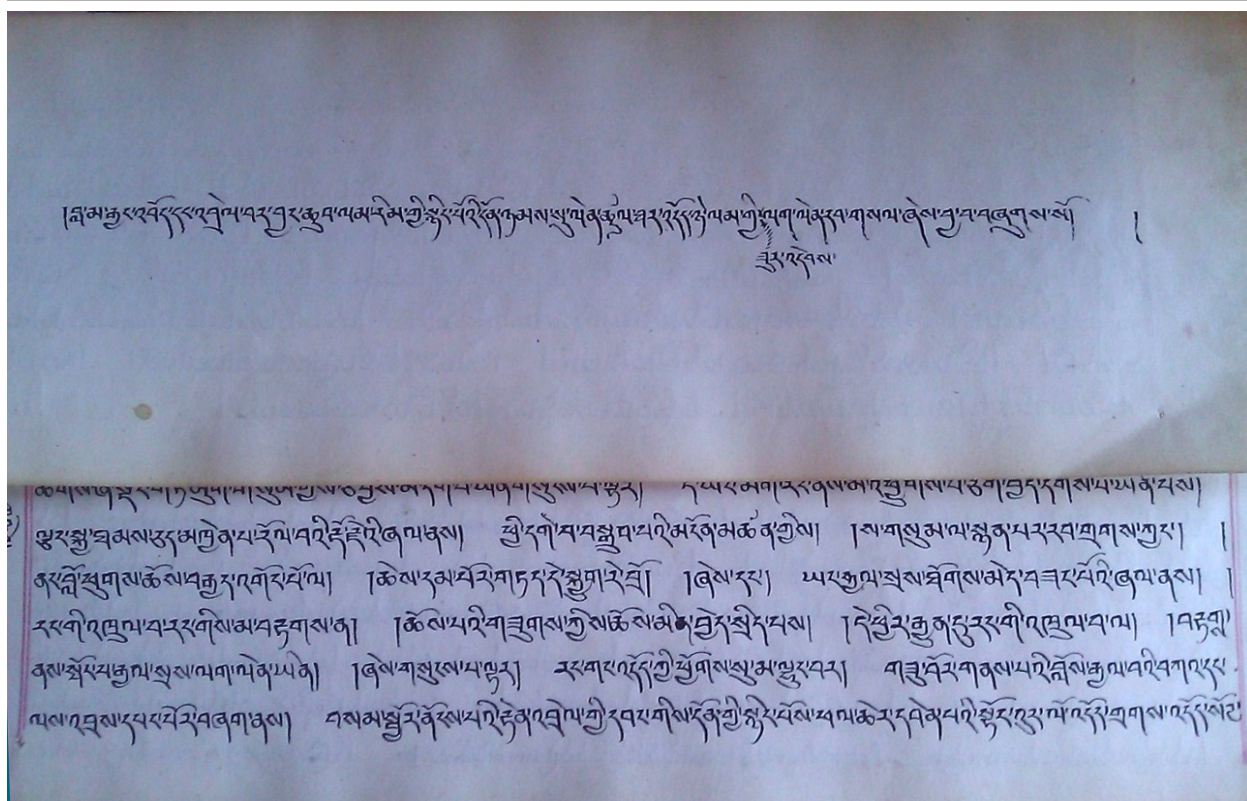 །བླ་མ་རྒྱང་འབོད་དང་འབྲེལ་བར་བྱང་ཆུབ་ལམ་རིམ་གྱི་སྙིང་པོའི་དོན་ཉམས་སུ་ལེན་ཚུལ་ཐར་འདོད་ལམ་གྱི་ལག་ལེན་རབ་གསལ་ཞེས་བྱ་བ་བཞུགས་སོ། །
ཟུར་འདེབས་
ལྟར་སྐྱ་ཐམས་ཅད་མཁྱེན་པ་རོལ་བའི་རྡོ་རྗེའི་ཞལ་ནས། ཕྱི་དགེ་བ་བསྒྲུབ་པའི་མངོན་མཚན་གྱིས། །ས་གསུམ་ལ་སྙན་པར་རབ་གྲགས་ཀྱང་། །
ནང་བློ་ཕུགས་ཆོས་བརྒྱད་འགོང་པོ་ལ། །ཆེས་དམ་པོར་གཏད་དེ་སྐྱུག་རེ་བྲོ། །ཞེས་དང་། ཡང་རྒྱལ་སྲས་ཐོགས་མེད་བཟང་པོའི་ཞལ་ནས། །
རང་གི་འཁྲུལ་བ་རང་གིས་མ་བརྟགས་ན། །ཆོས་པའི་གཟུགས་ཀྱིས་ཆོས་མིན་བྱེད་སྲིད་པས། །དེ་ཕྱིར་རྒྱུན་དུ་རང་གི་འཁྲུལ་བ་ལ། །བརྟགས་
ནས་སྤོང་བ་རྒྱལ་སྲས་ལག་ལེན་ཡིན། །ཞེས་གསུངས་པ་ལྟར། རང་གང་འདོད་ཀྱི་ཕྱོགས་སུ་མ་ལྷུང་བར། གཟུ་བོར་གནས་པའི་བློས་རྒྱལ་བའི་བཀའ་དང་
ལས་འབྲས་དཔང་པོར་བཞག་ནས། བསམ་སྦྱོར་ནོངས་པའི་རྟེན་འབྲེལ་གྱི་དབང་གིས་དོན་གྱི་སྙིང་པོས་ཕལ་ཆེར་དབེན་པའི་སྟོང་འུར་ལོ་འདོད་གྲགས་འདོད་སོང་